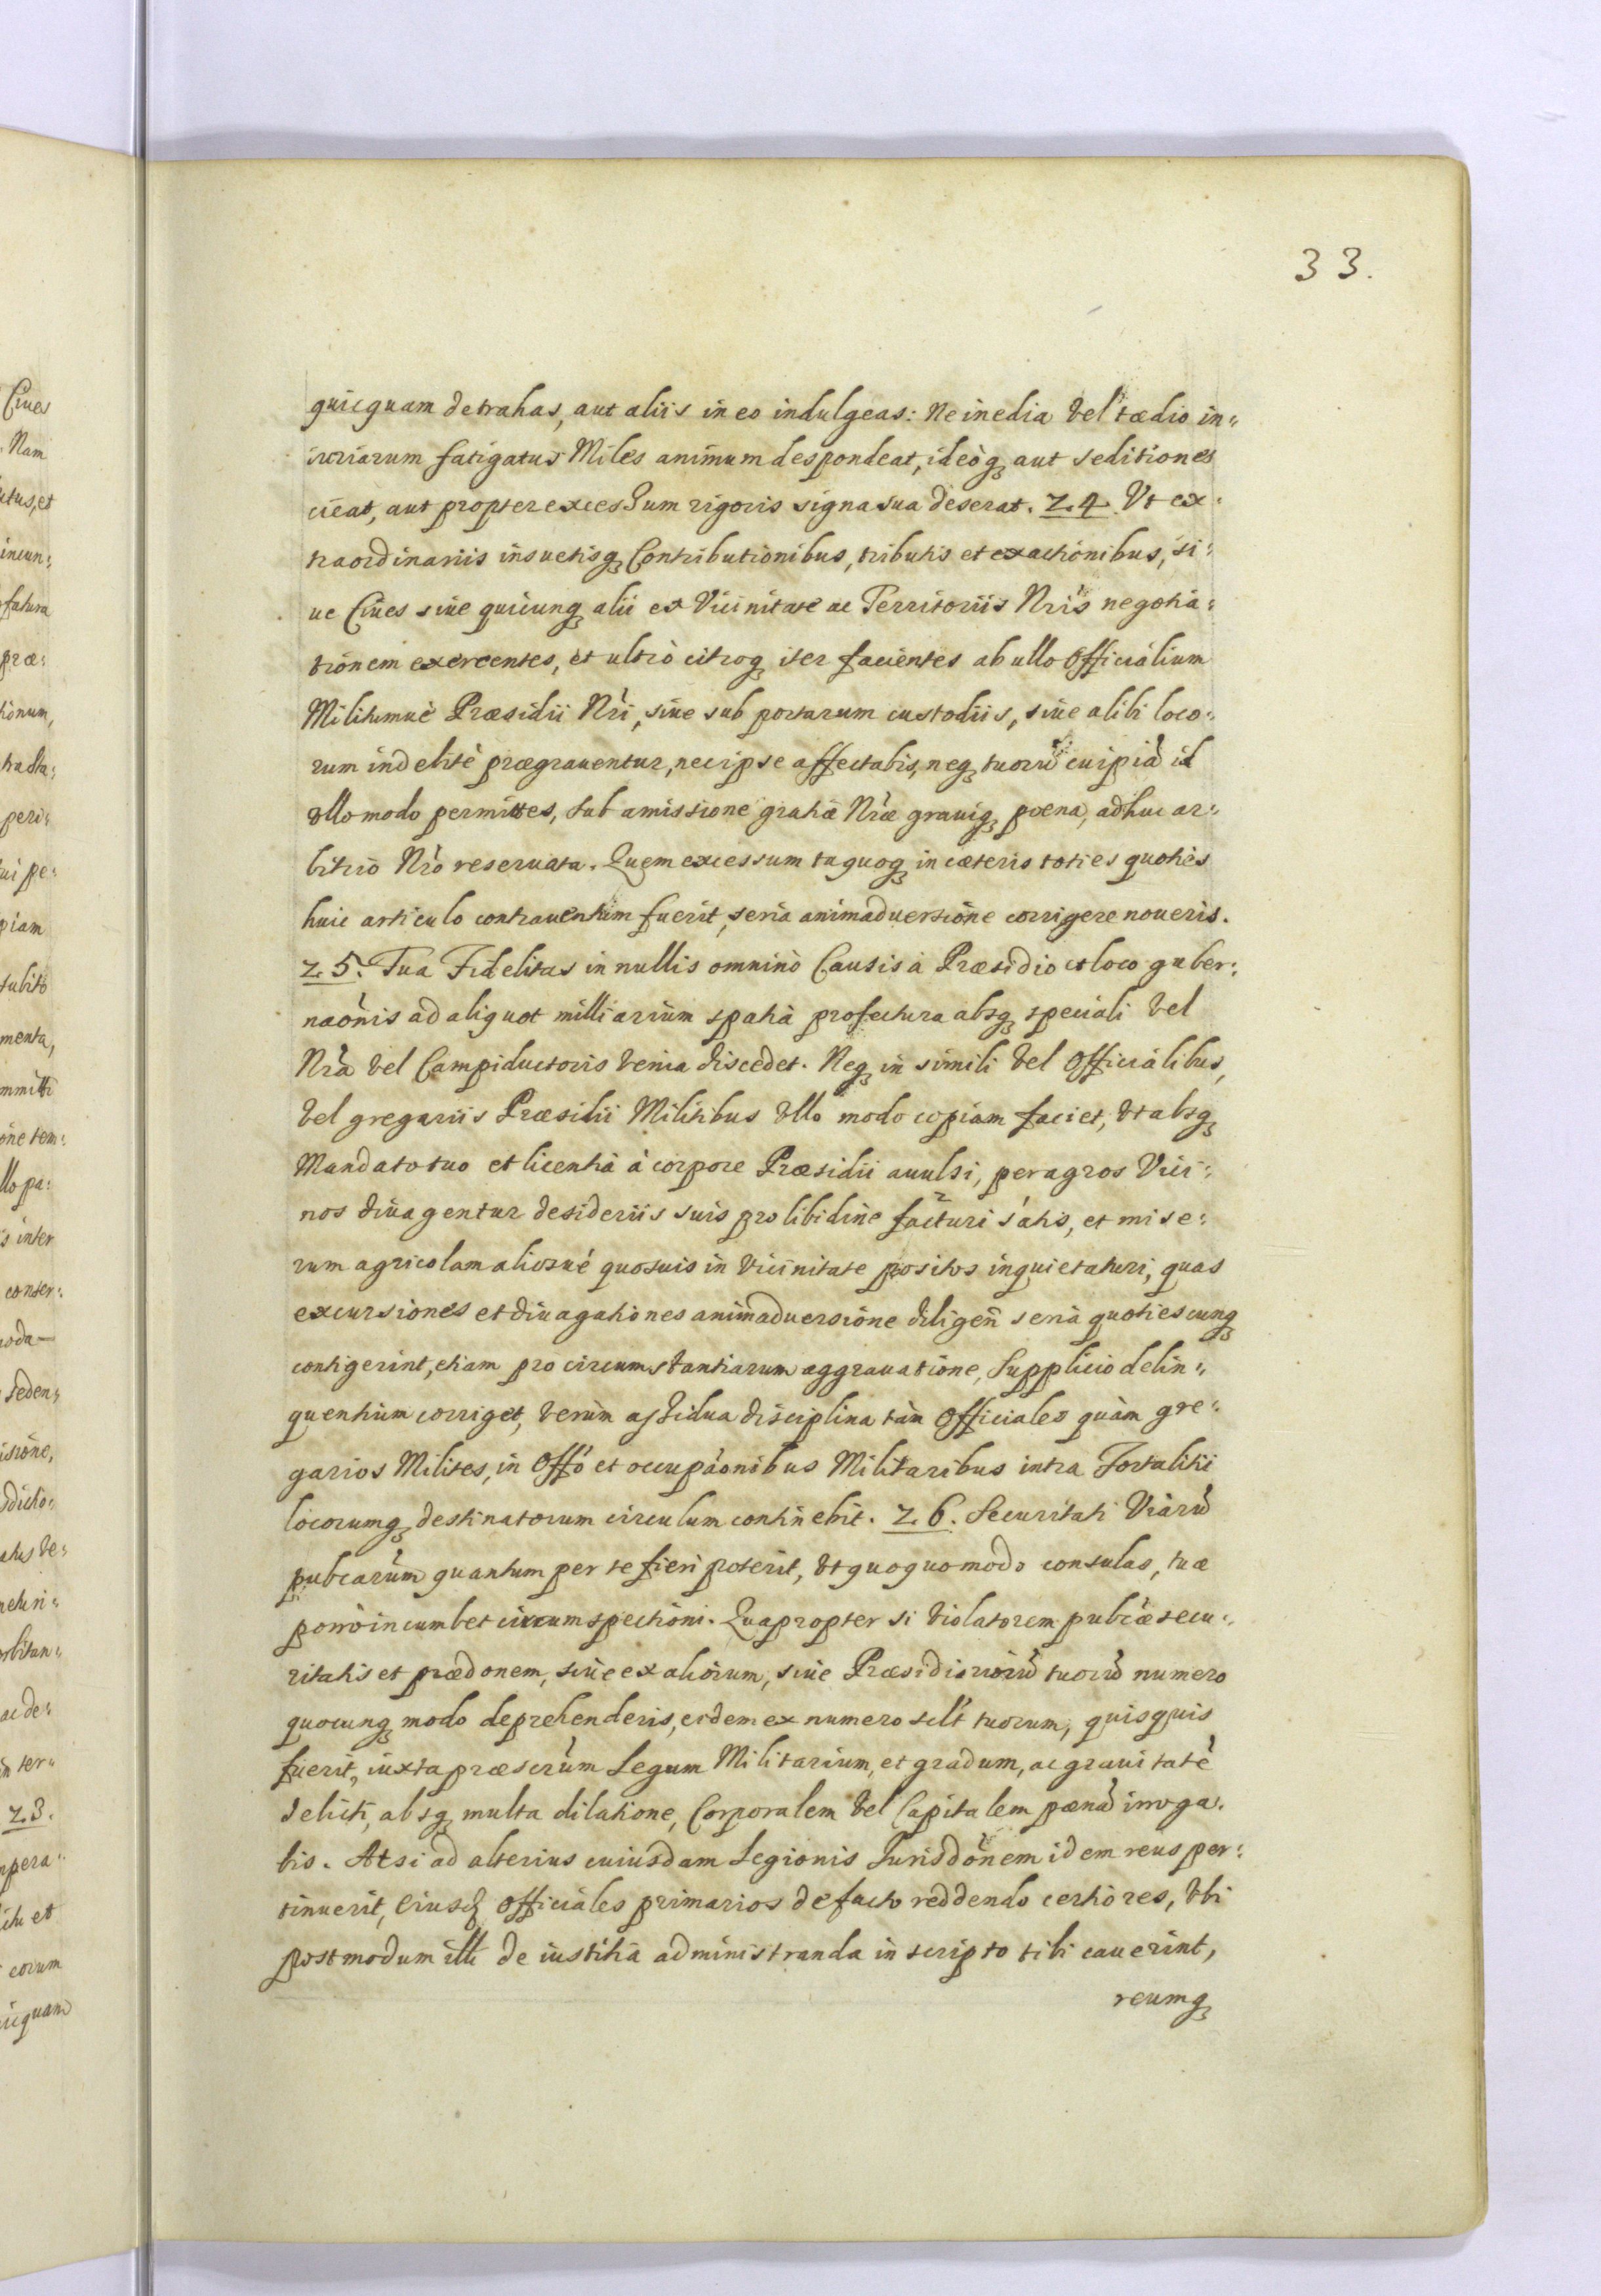 33.
quicquam detrahas, aut aliis in eo indulgeas: Ne inedia vel tædio in„
iuriarum fatigatus Miles animum despondeat, ideòq₃ aut seditiones
cieat, aut propter excessum rigoris signa sua deserat. 24. Vt ex:
traordinariis insuetisq₃ Contributionibus, tributis et exactionibus, si:
ue Ciues siue quicunq₃ alii ex Vicinitate ac Territoriis Nris negotia:
tionem exercentes, et ultrò citroq₃ iter facientes ab ullo Officialium
Militumuè Præsidii Nri, siue sub portarum custodiis, siue alibi loco:
rum indebitè prægrauentur, nec ipse affectabis, neq₃ tuorũ cuipiã id
vllo modo permittes, sub amissione gratiæ Nræ grauiq₃ poena, adhuc ar:
bitrio Nro reseruata. Quem excessum tu quoq₃ in cæteris toties quoties
huic articulo contrauentum fuerit, seria animaduersione corrigere noueris.
25. Tua Fidelitas in nullis omninò Causis à Præsidio et loco guber:
naõnis ad aliquot milliarium spatia profectura absq₃ speciali vel
Nrã vel Campiductoris venia discedet. Neq₃ in simili vel Officialibus,
vel gregariis Præsidii Militibus vllo modo copiam faciet, vt absq₃
Mandato tuo et licentià à corpore Præsidii auulsi, per agros Vici:
nos diuagentur desideriis suis pro libidine facturi satis, et mise:
rum agricolam aliosué quosuis in vicinitate positos inquietaturi, quas
excursiones et diuagationes animaduersione diligeñ seria quotiescunq₃
contigerint, etiam pro circumstantiarum aggrauatione, Supplicio delin:
quentium corriget, verùm assidua disciplina tàm Officiales quàm gre:
garios Milites, in Offo et occupãonibus Militaribus intra Fortalitii
locorumq₃ destinatorum circulum continebit. 26. Securitati Viarũ
pubcarũm quantum per te fieri poterit, vt quoquomodo consulas, tuæ
porrò incumbet circumspectioni. Quapropter si violatorem pubcæ secu:
ritatis et prædonem, siue ex aliorum, siue Præsidiariorũ tuorũ numero
quocunq₃ modo deprehenderis, eidem ex numero scilt tuorum, quisquis
fuerit, iuxta præscrũm Legum Militarium, et gradum, ac grauitatẽ
delicti, absq₃ multa dilatione, Corporalem vel Capitalem pœnã irroga:
bis. At si ad alterius cuiusdam Legionis Jurisdõnem idem reus per:
tinuerit, eiusq₃ Officiales primarios de facto reddendo certiores, vbi
postmodum illi de iustitia administranda in scripto tibi cauerint,
reumq₃